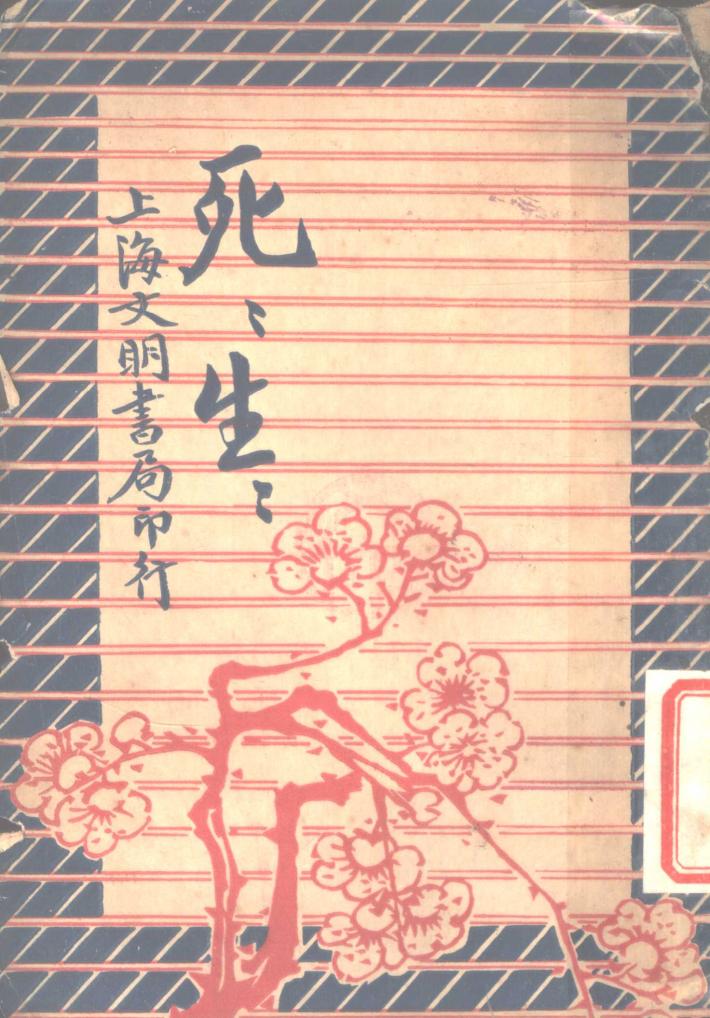 死〻生〻
上海文明書局印行